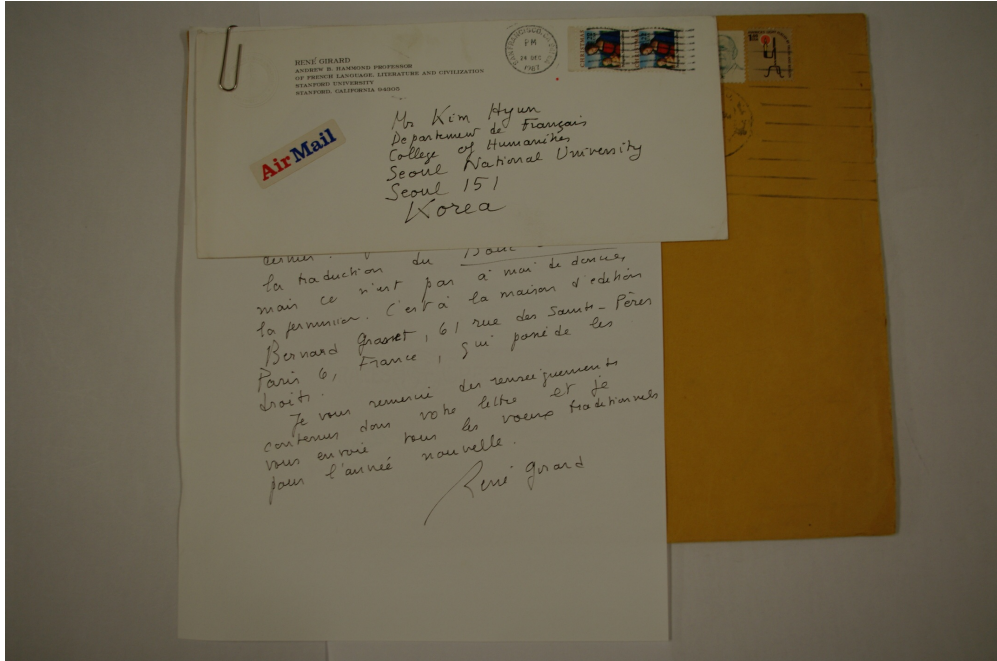 RENÉ GIRARD
ANDREW B. HAMMOND PROFESSOR
OF FRENCH LANGUAGE, LITERATURE AND CIVILIZATION
STANFORD UNIVERSITY
STANFORD, CALIFORNIA 94305
PM
1987
Air Mail
Mr Kim Hyun
Departement de Français
College of Humanities
Seoul National University
Seoul 151
Korea
la traduction du Bouc
mais ce n'est pas à moi de donner
la permission. C'est à la maison d'edition
Bernard Grasset, 61 rue des Saints-Pères
Paris 6, France, qui possède les
droits.
Je vous remercie des renseignements
contenus dans votre lettre et je
vous envoie tous les voeux traditionnels
pour l'année nouvelle.
René Girard